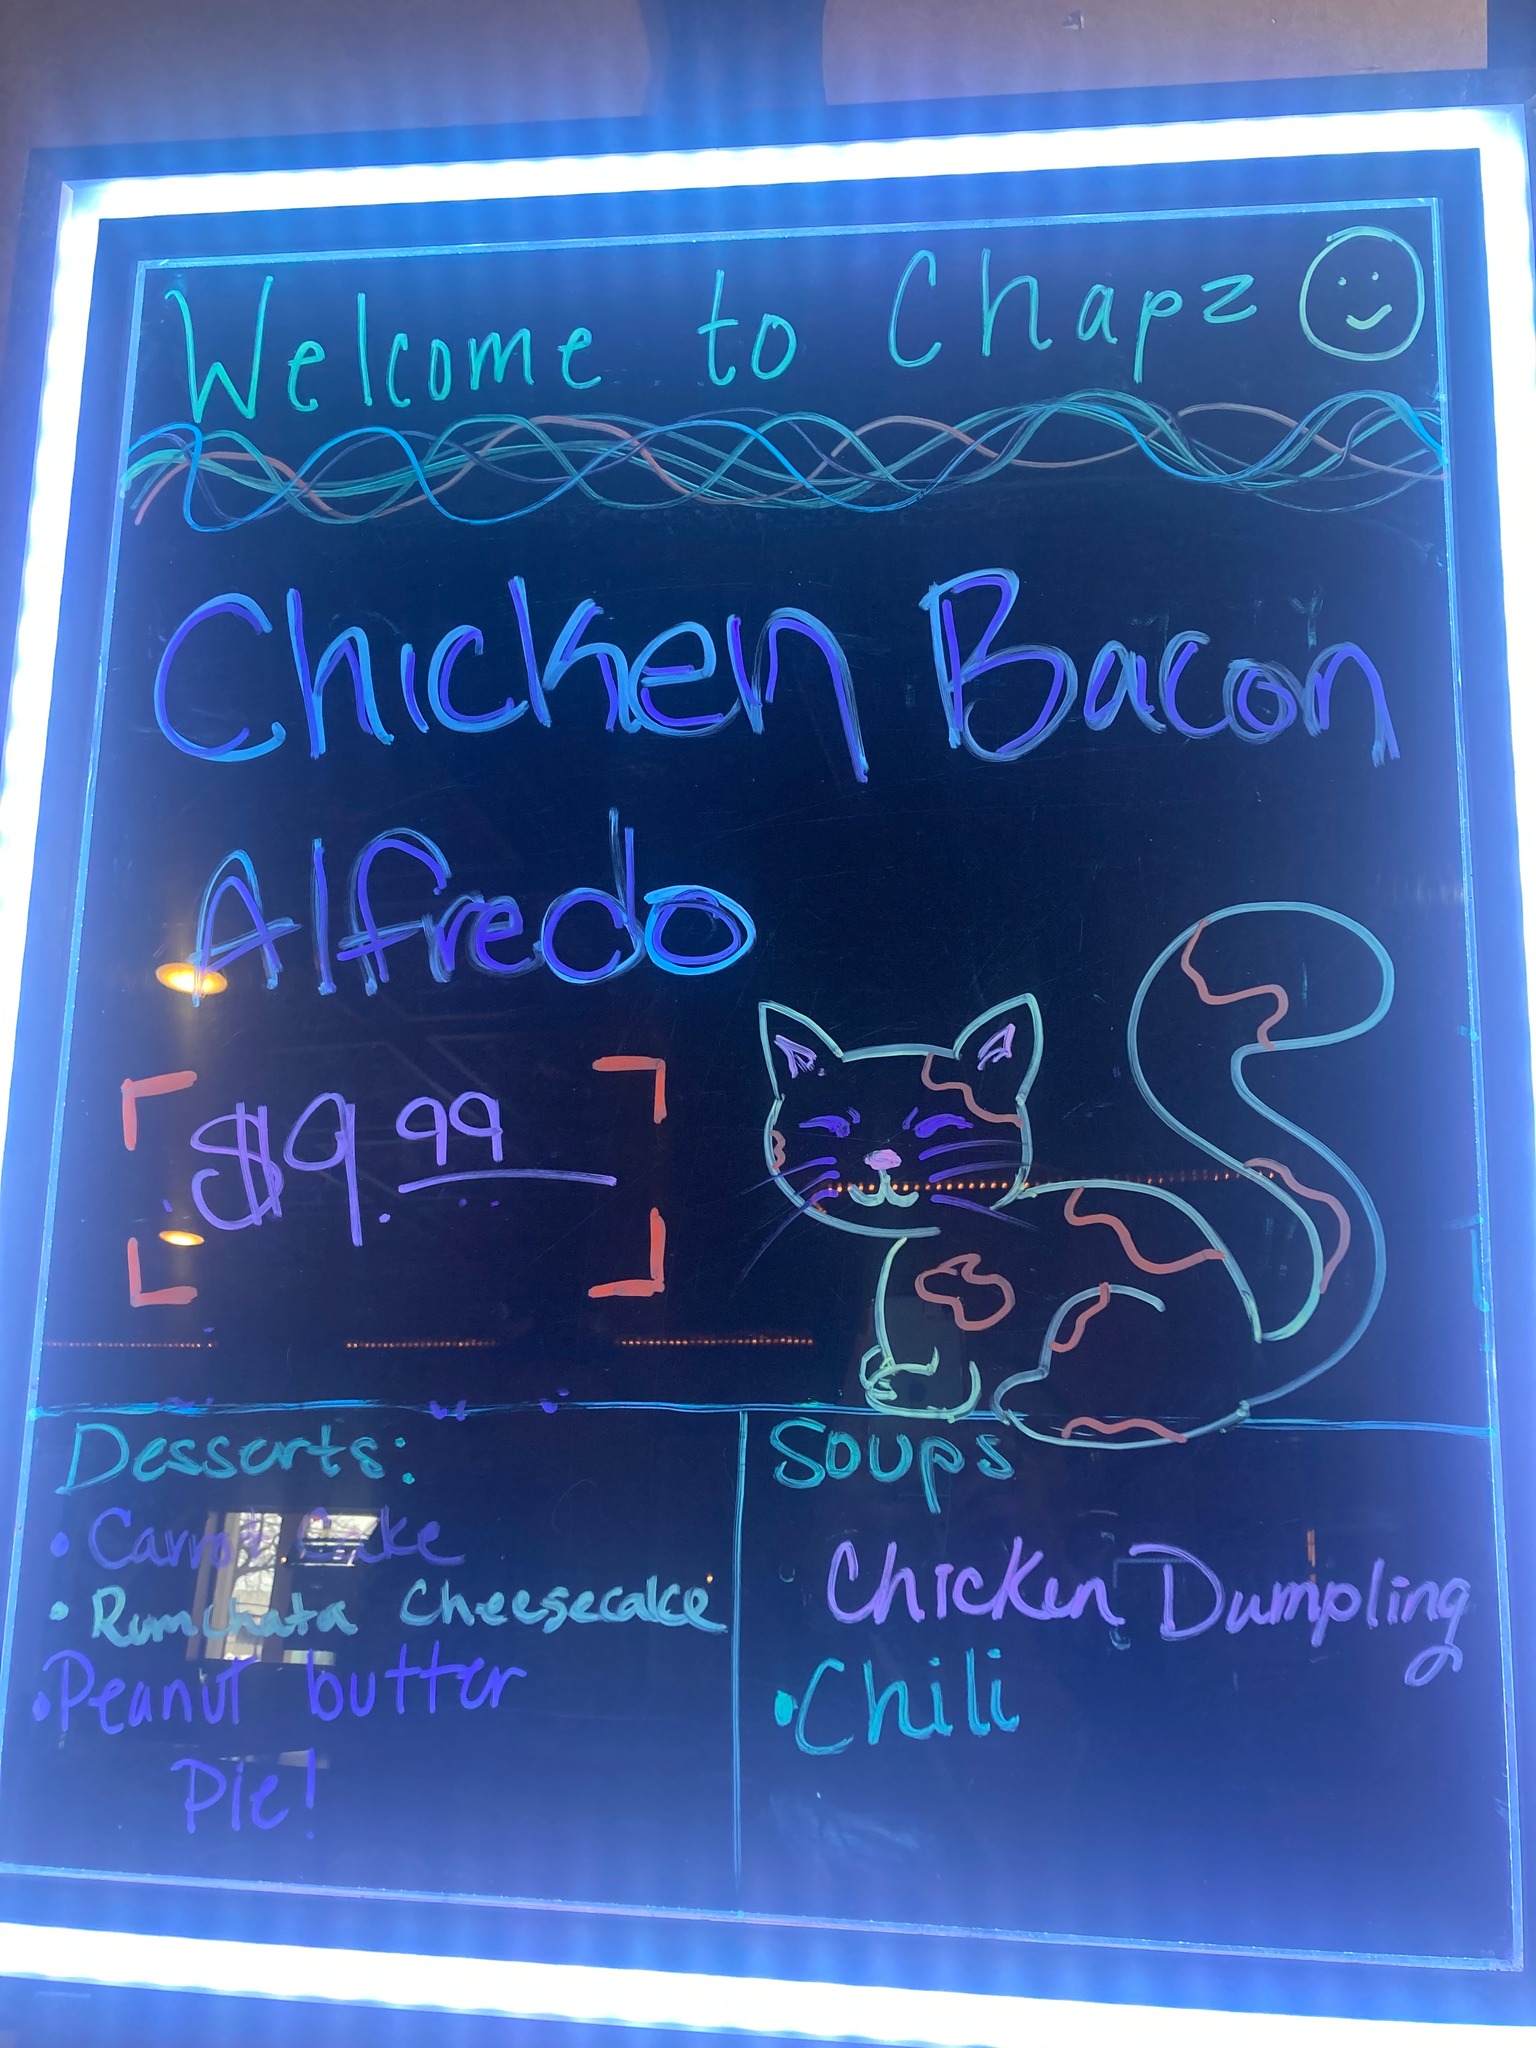 Welcome to Chapz
Chicken Bacon
Alfredo
$9.99
Desserts:
• Carrot Cake
• Rumchata Cheesecake
• Peanut butter
Pie!
Soups
Chicken Dumpling
• Chili